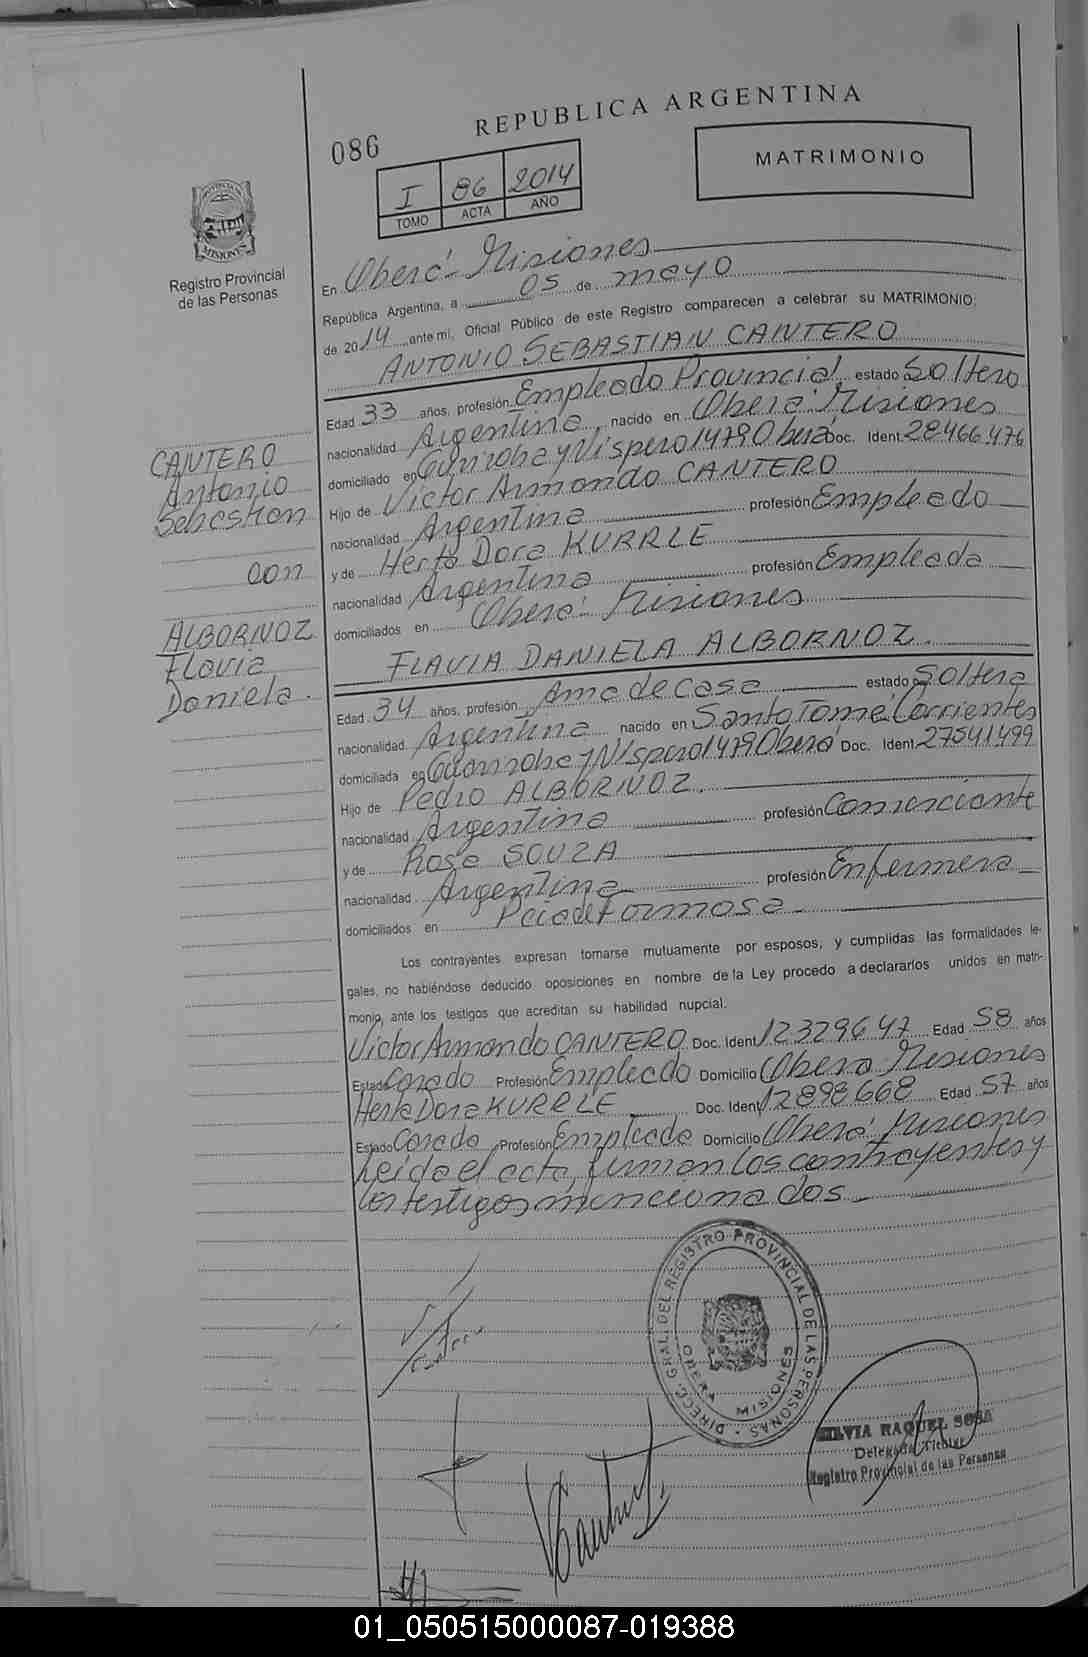 REPUBLICA ARGENTINA
086
MATRIMONIO
I 86 2014
TOMO ACTA AÑO
Registro Provincial
de las Personas
En Oberá - Misiones
República Argentina, a 05 de mayo
de 2014 ante mi, Oficial Público de este Registro comparecen a celebrar su MATRIMONIO:
ANTONIO SEBASTIAN CANTERO
Edad 33 años, profesión Empleado Provincial estado Soltero
nacionalidad Argentina nacido en Oberá Misiones
domiciliado en y Nispero 1479 Oberá Doc. Ident. 28466476
Hijo de Victor Armando CANTERO
nacionalidad Argentina profesión Empleado
y de Herta Dora KURRLE
nacionalidad Argentina profesión Empleada
domiciliados en Oberá Misiones
CANTERO
Antonio
Sebastian
con
ALBORNOZ
Flavia
Daniela.
FLAVIA DANIELA ALBORNOZ.
Edad 34 años, profesión Ama de casa estado Soltera
nacionalidad Argentina nacido en Santo Tomé Corrientes
domiciliada en y Nispero 1479 Oberá Doc. Ident. 27541499
Hijo de Pedro ALBORNOZ.
nacionalidad Argentina profesión Comerciante
y de Rosa SOUZA
nacionalidad Argentina profesión Enfermera
domiciliados en Pcia de Formosa
Los contrayentes expresan tomarse mutuamente por esposos, y cumplidas las formalidades le-
gales, no habiéndose deducido oposiciones en nombre de la Ley procedo a declararlos unidos en matri-
monio, ante los testigos que acreditan su habilidad nupcial.
Victor Armando CANTERO Doc. Ident. 12329647 Edad 58 años
Estado Casado Profesión Empleado Domicilio Oberá Misiones
Herta Dora KURRLE Doc. Ident. 12898668 Edad 57 años
Estado Casada Profesión Empleada Domicilio Oberá Misiones
Leída el acta, firman los contrayentes y
los testigos mencionados
DIRECC. GRAL. DEL REGISTRO PROVINCIAL DE LAS PERSONAS
OBERA MISIONES
SILVIA RAQUEL SOSA
Delegada Titular
Registro Provincial de las Personas
01_050515000087-019388